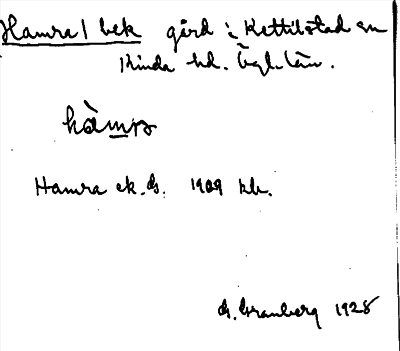 Hamra / bek gård i Kettilstad sn
Kinda hd. Ögl. län.
hàmra
Hamra ek. G. 1909 kb.
G. Granberg 1928